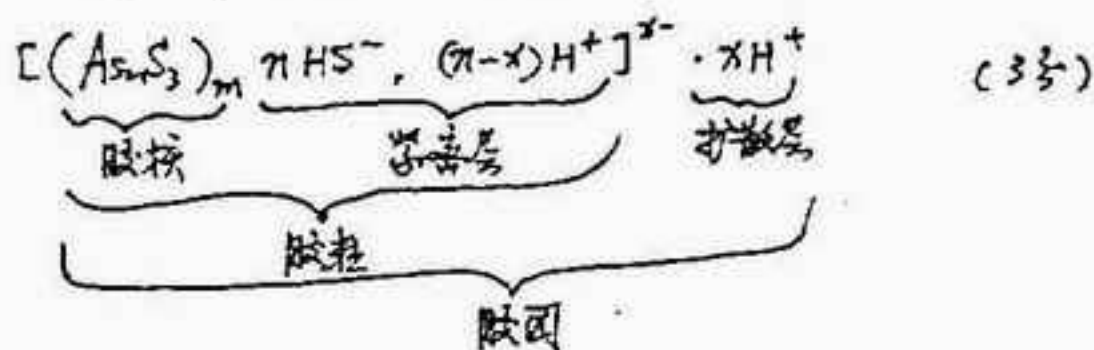 [(As₂S₃)m nHS⁻, (n-x)H⁺]ˣ⁻ · xH⁺ (3分)
胶核 紧密层 扩散层
胶粒
胶团